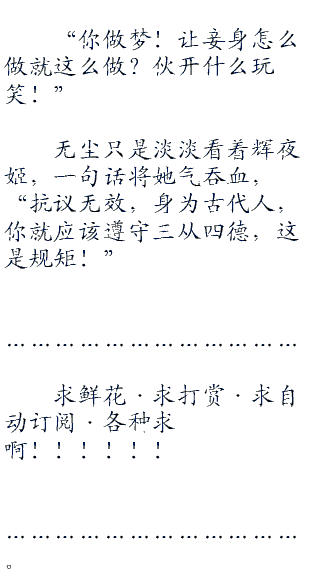 “你做梦！让妾身怎么
做就这么做？伙开什么玩
笑！”
无尘只是淡淡看着辉夜
姬，一句话将她气吞血，
“抗议无效，身为古代人，
你就应该遵守三从四德，这
是规矩！”
………………………………
求鲜花·求打赏·求自
动订阅·各种求
啊！！！！！！
………………………………
。